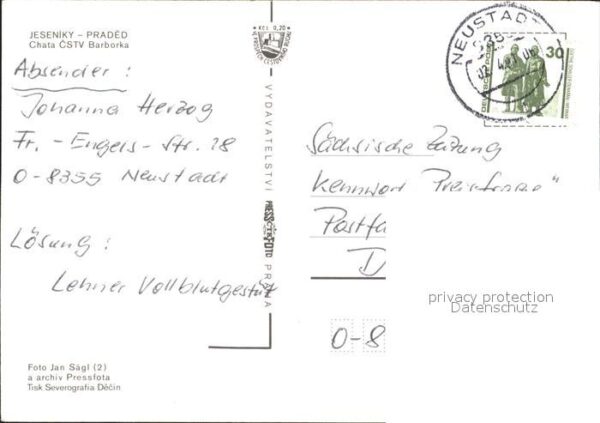 JESENÍKY – PRADĚD
Chata ČSTV Barborka
Kčs 0,20
Absender :
Johanna Herzog
Fr. - Engels - Str. 18
O-8355 Neustadt
Lösung :
Lehner Vollblutgestüt
Foto Jan Ságl (2)
a archiv Pressfota
Tisk Severografia Děčín
VYDAVATELSTVÍ
PRESSFOTO
PRAHA
NEUSTADT
DEUTSCHE POST
30
Sächsische Zeitung
Kennwort "Preisfrage"
Postfa
D
O-8
privacy protection
Datenschutz